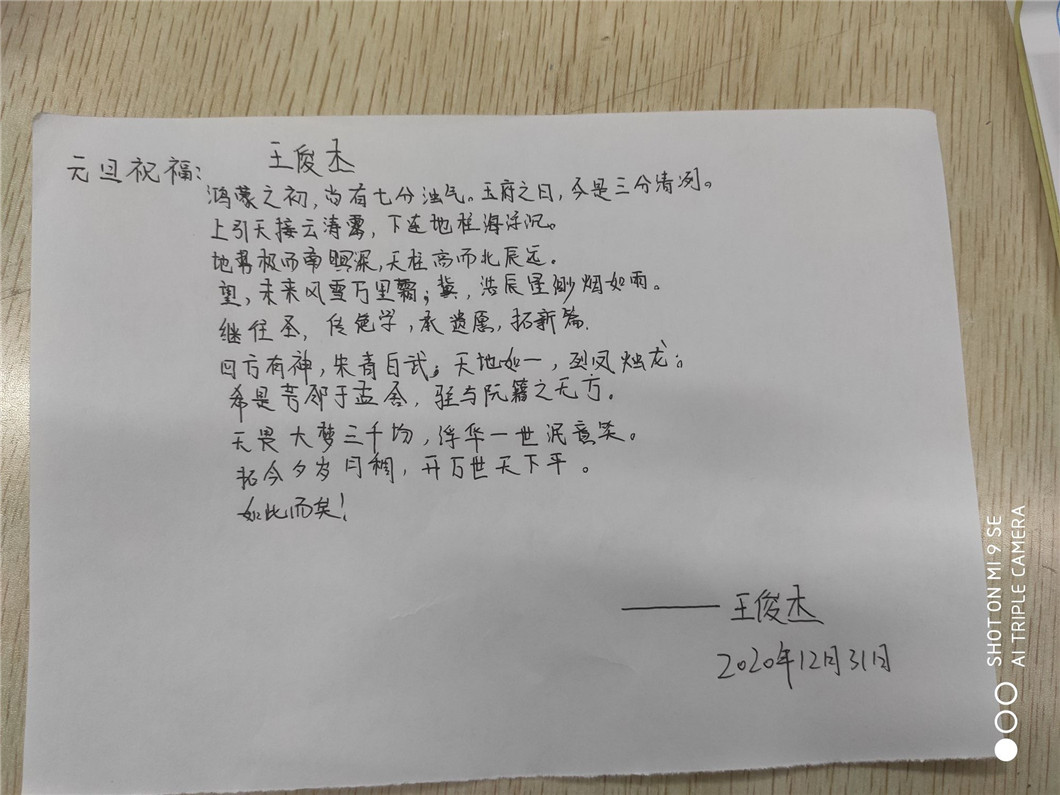 元旦祝福：
王俊杰
鸿蒙之初，尚有七分浊气。玉府之日，系是三分清冽。
上引天接云涛雾，下连地柱海浮沉。
地势极而南暝深，天柱高而北辰远。
望，未来风雪万里霜；冀，浩辰星渺烟如雨。
继往圣，传绝学，承遗愿，拓新篇.
四方有神，朱青白武；天地如一，烈凤烛龙；
希是芳邻于孟舍，驻与阮籍之无方。
无畏大梦三千均，浮华一世泯意笑。
拓今夕岁月稠，开万世天下平。
如此而矣！
——王俊杰
2020年12月31日
SHOT ON MI 9 SE
AI TRIPLE CAMERA